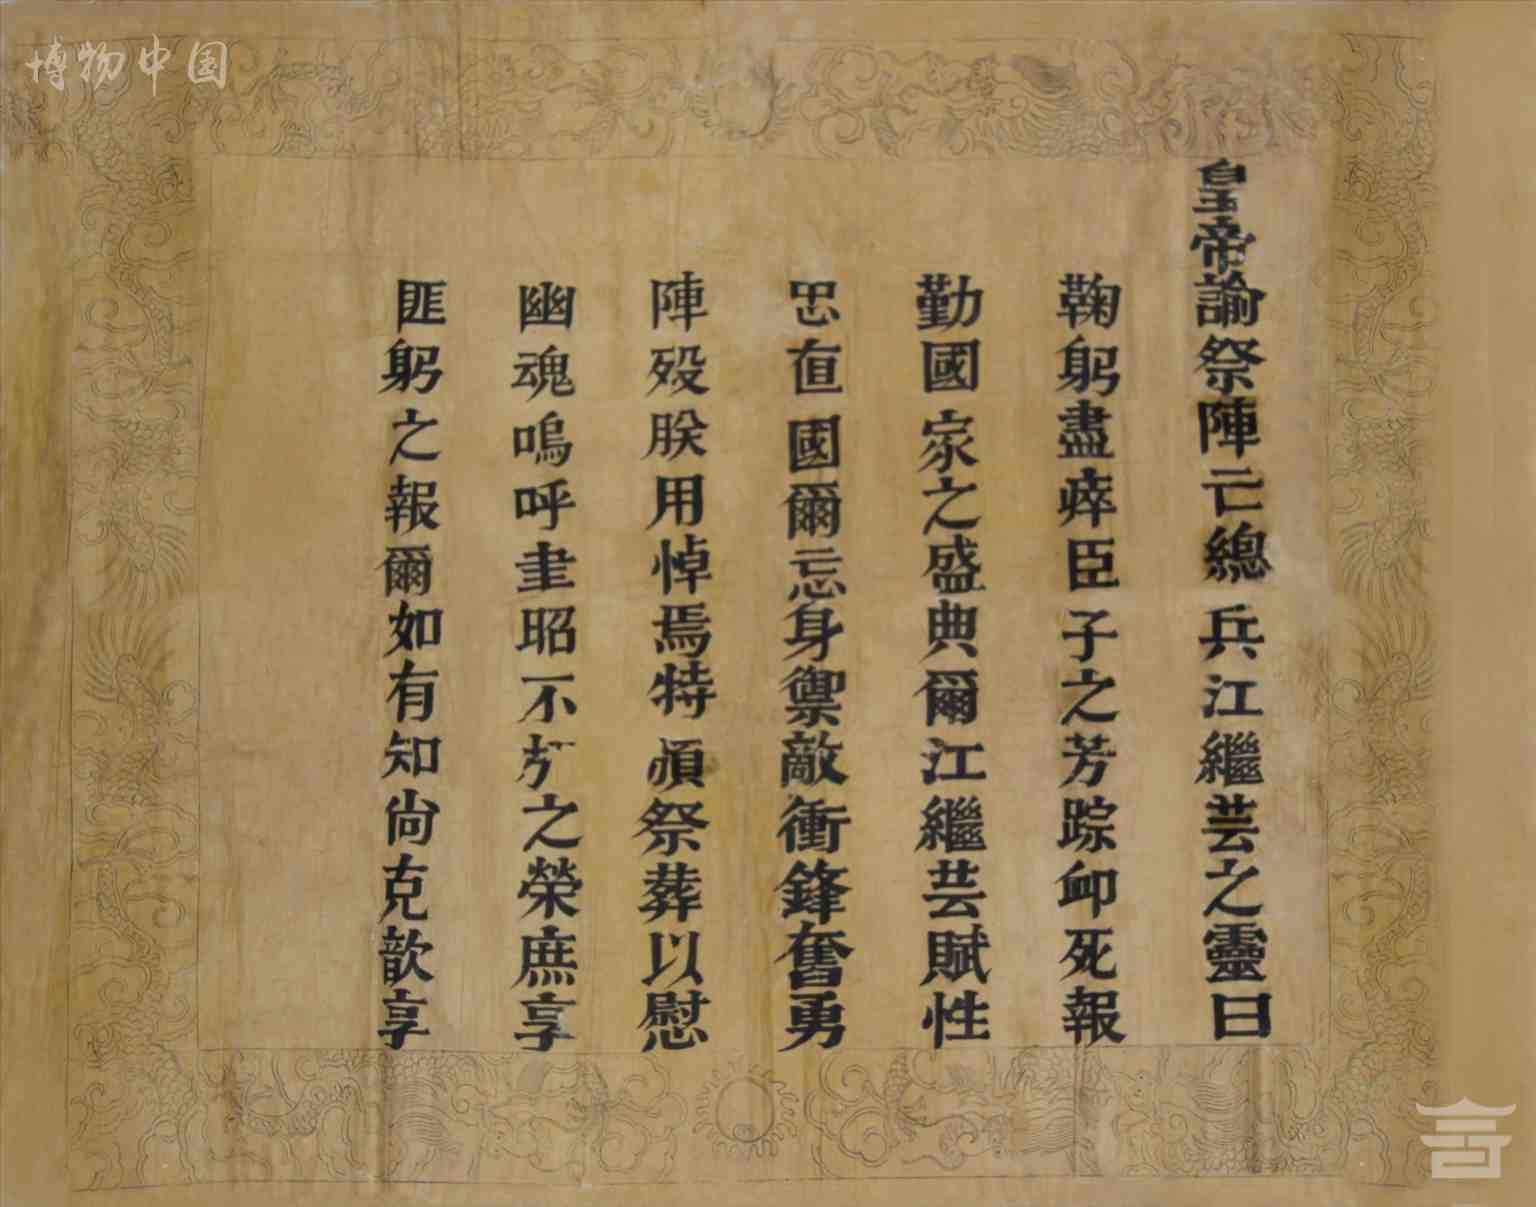 博物中国
皇帝諭祭陣亡總兵江繼芸之靈曰
鞠躬盡瘁臣子之芳踪卹死報
勤國家之盛典爾江繼芸賦性
忠直國爾忘身禦敵衝鋒奮勇
陣歿朕用悼焉特頒祭葬以慰
幽魂嗚呼聿昭不朽之榮庶享
匪躬之報爾如有知尚克歆享